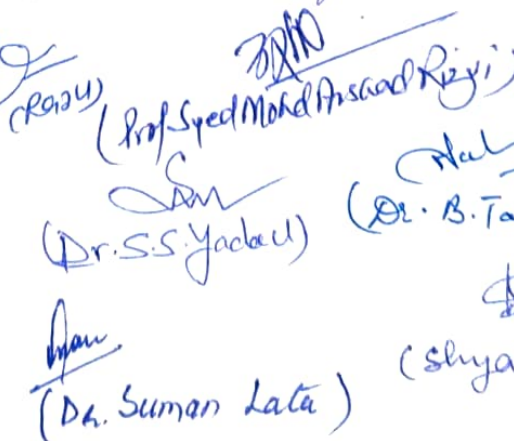 (Raju)
(Prof Syed Mohd Arshad Rizvi)
(Dr. S.S. Yadav)
(Dr. B. Ta
(Dr. Suman Lata)
(Shya